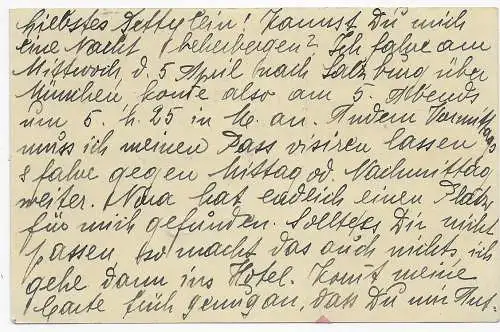 Liebstes Bettylein! Kannst Du mich
eine Nacht beherbergen? Ich fahre am
Mittwoch d. 5 April nach Salzburg über
München, komme also am 5. Abends
um 5. h. 25 in M. an. Andern Vormittags
muss ich meinen Pass visiren lassen
& fahre gegen Mittag od. Nachmittag
weiter. Nora hat endlich einen Platz
für mich gefunden. Sollte es Dir nicht
passen so macht das auch nichts, ich
gehe dann ins Hotel. Komt meine
Carte früh genug an, dass Du mir Ant-